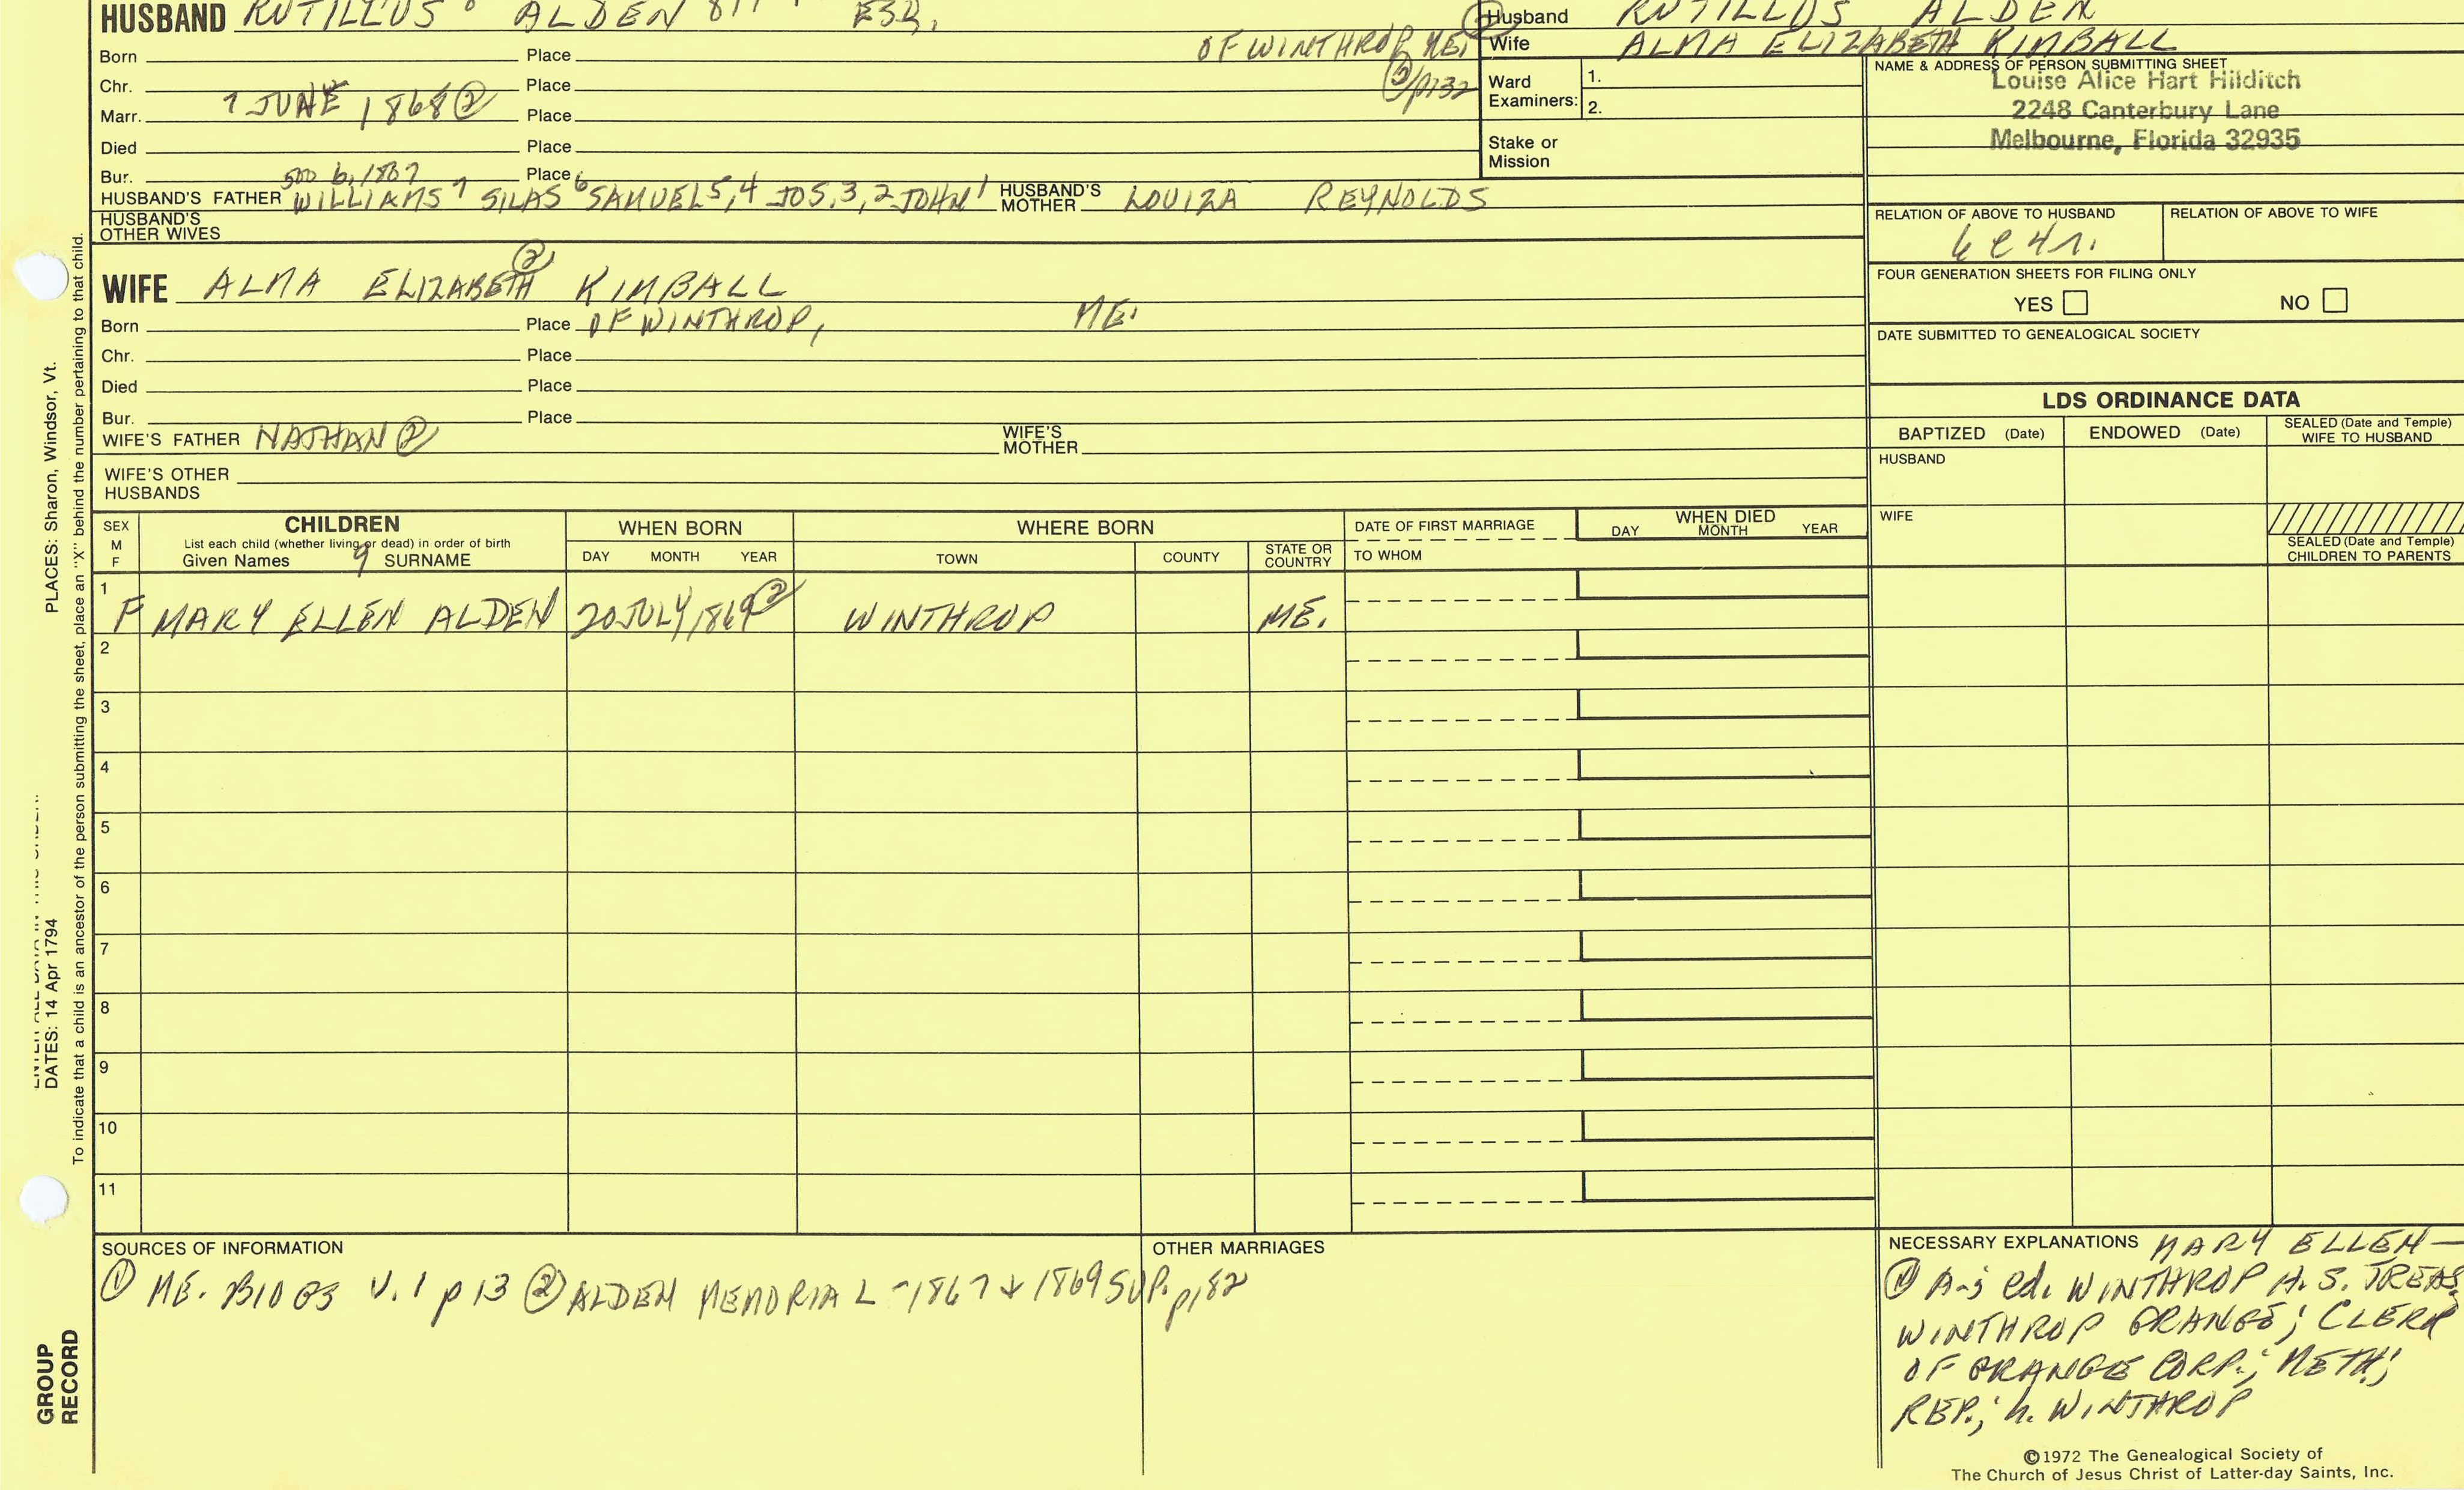 HUSBAND RUTILLUS ALDEN ESQ.
OF WINTHROP, ME.
Born Place
Chr. Place
② /p132
Marr. 7 JUNE 1868 ② Place
Died Place
Bur. Place
HUSBAND'S FATHER WILLIAMS 7 SILAS 6 SAMUEL 5,4 JOS. 3,2 JOHN 1 HUSBAND'S MOTHER LOUIZA REYNOLDS
HUSBAND'S OTHER WIVES
Husband RUTILLUS ALDEN
Wife ALMA ELIZABETH KIMBALL
Ward Examiners: 1.
2.
Stake or Mission
NAME & ADDRESS OF PERSON SUBMITTING SHEET
Louise Alice Hart Hilditch
2248 Canterbury Lane
Melbourne, Florida 32935
RELATION OF ABOVE TO HUSBAND RELATION OF ABOVE TO WIFE
FOUR GENERATION SHEETS FOR FILING ONLY
YES NO
DATE SUBMITTED TO GENEALOGICAL SOCIETY
WIFE ALMA ELIZABETH ② KIMBALL
Born Place OF WINTHROP, ME.
Chr. Place
Died Place
Bur. Place
WIFE'S FATHER NATHAN ② WIFE'S MOTHER
WIFE'S OTHER HUSBANDS
LDS ORDINANCE DATA
BAPTIZED (Date) ENDOWED (Date) SEALED (Date and Temple) WIFE TO HUSBAND
HUSBAND
WIFE
SEALED (Date and Temple) CHILDREN TO PARENTS
SEX M F
CHILDREN
List each child (whether living or dead) in order of birth
Given Names 9 SURNAME
WHEN BORN
DAY MONTH YEAR
WHERE BORN
TOWN COUNTY STATE OR COUNTRY
DATE OF FIRST MARRIAGE
TO WHOM
WHEN DIED
DAY MONTH YEAR
1 F MARY ELLEN ALDEN 20 JULY 1869 ② WINTHROP ME.
2
3
4
5
6
7
8
9
10
11
SOURCES OF INFORMATION
① ME. BIOGS V. 1 p 13 ② ALDEN MEMORIAL - 1867 + 1869 SUP. p182
OTHER MARRIAGES
NECESSARY EXPLANATIONS MARY ELLEN —
① ed. WINTHROP H. S. TREAS.
WINTHROP GRANGE; CLERK
OF GRANGE CORP.; METH;
REP.; h. WINTHROP
©1972 The Genealogical Society of
The Church of Jesus Christ of Latter-day Saints, Inc.
PLACES: Sharon, Windsor, Vt.
DATES: 14 Apr 1794
To indicate that a child is an ancestor of the person submitting the sheet, place an "X" behind the number pertaining to that child.
GROUP
RECORD